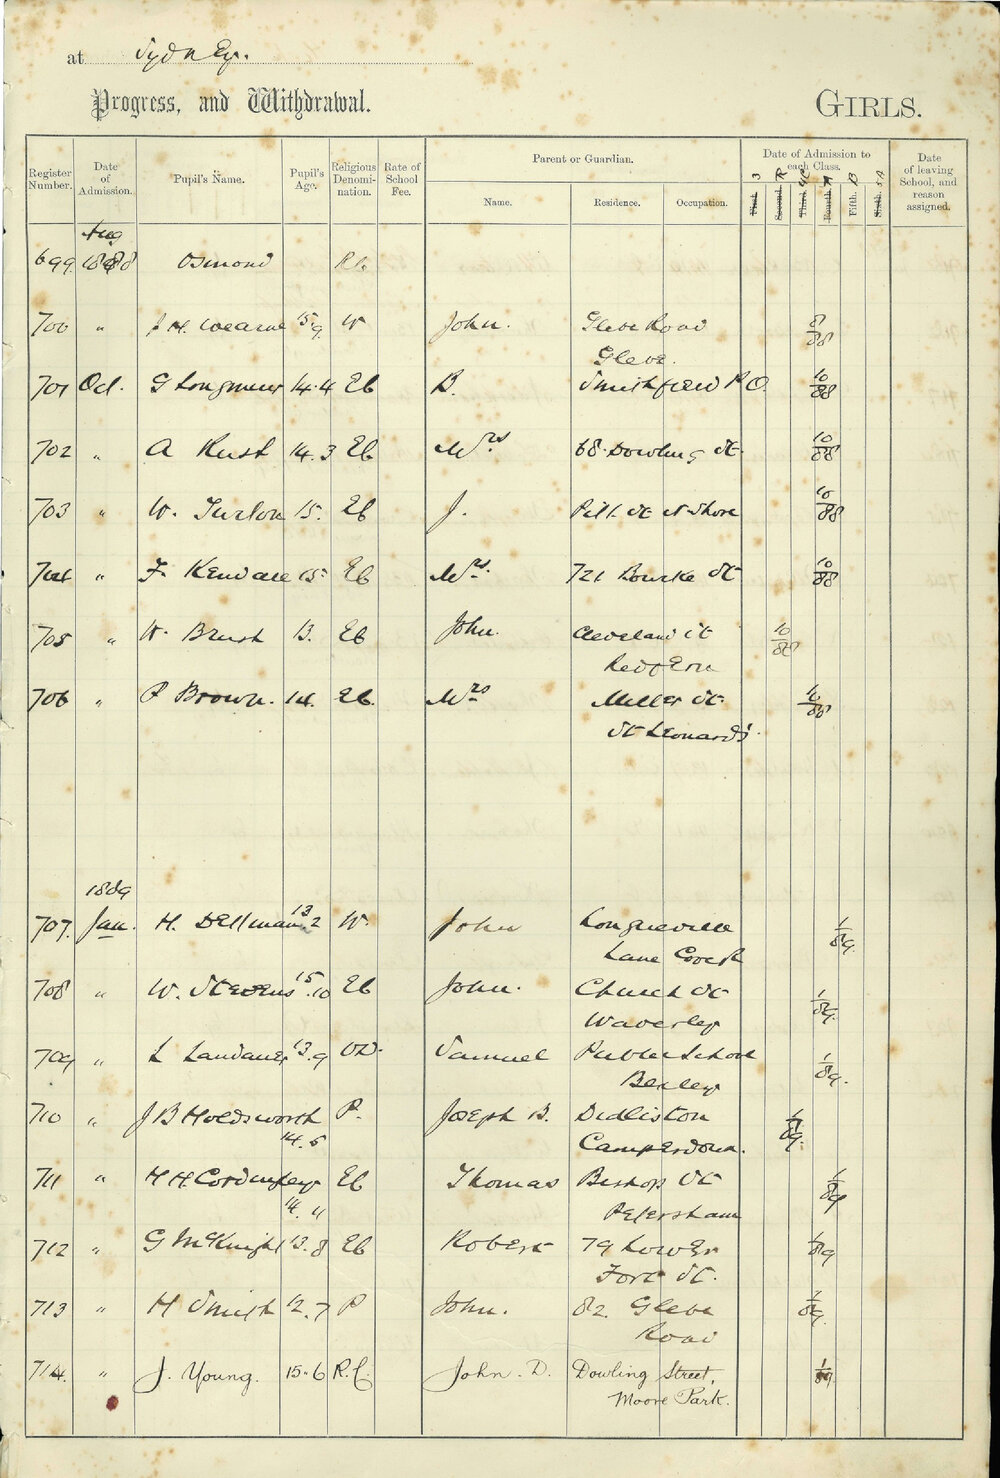 at Sydney.
Progress, and Withdrawal. GIRLS.
Register Number. Date of Admission. Pupil's Name. Pupil's Age. Religious Denomination. Rate of School Fee. Parent or Guardian. Date of Admission to each Class. Date of leaving School, and reason assigned.
Name. Residence. Occupation. Third. 3 Second. R Third. 4C Fourth. R Fifth. B Sixth. 5A
Aug
699. 1888 Osmond R.C.
700 " J H. Wearne 15.9 W John. Glebe Road 8/88
Glebe.
701 Oct. G Longmuir 14.4 Eb B. Smithfield P.O. 10/88
702 " A Rust 14.3 Eb Mrs 68 Dowling St. 10/88
703 " W. Turton 15. Eb J. Pitt St N Shore 10/88
704 " F. Kendall 15 Eb Mrs. 721 Bourke St 10/88
705 " W. Brush 13. Eb John. Cleveland St 10/88
Redfern
706 " P Brown. 14. Eb. Mrs Miller St. 10/88
St Leonards.
1889
707. Jan. H. Dellman 13.2 W. John Longueville 1/89.
Lane Cove R
708 " W. Stevens 15.10 Eb John. Church St 1/89.
Waverley
709 " L Landauer 13.9 Samuel Public School 1/89.
Bexley
710 " J B Holdsworth P. Joseph B. 1/89.
14.5 Camperdown.
711 " H H. Cordingley Eb Thomas Bishop St 1/89
14.11 Petersham
712 " G McKnight 13.8 Eb Robert 79 Lower 1/89
Fort St.
713 " H Smith 12.7 P John. 82. Glebe 1/89.
Road
714. " J. Young. 15.6 R.C. John. D. Dowling Street, 1/89
Moore Park.